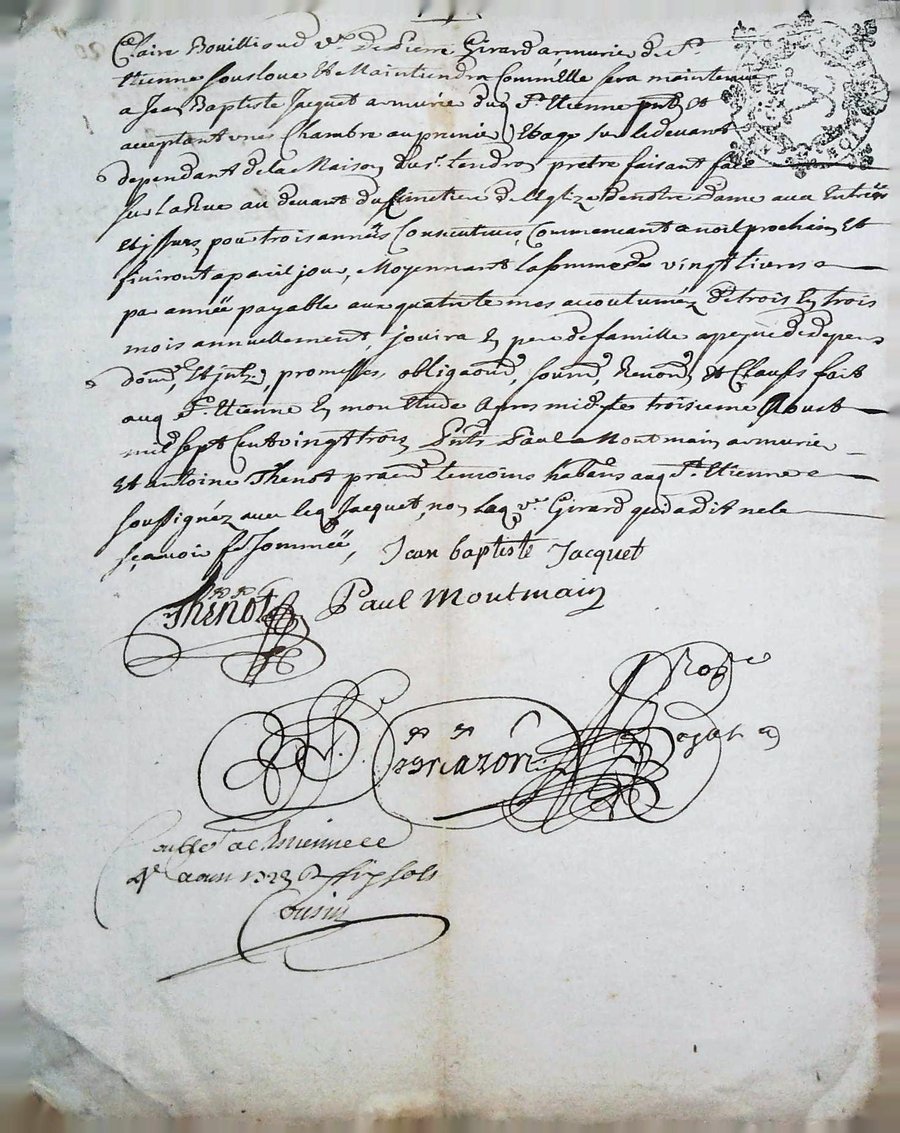 Claire Bouillioud v.e De Pierre Girard armurié de S.t
Etienne sousloue Et Maintiendra Comme Elle sera maintenue
a Jean Baptiste Jacquet armurié dud S.t Etienne pnt et
acceptant une Chambre au premié Etage sur le devant
dependant de la Maison du s.r tendron prêtre faisant face
sur La Rue au devant du Cimetiere de Eglize De notre Dame aux Entrées
Et jssues, pour trois années Consecutives, Commencant a noel prochain Et
finiront a pareil jour, Moyennant la somme de vingt livres
par année payable aux quatre termes accoutumés De trois En trois
mois annuellement, jouira En pere de famille a peyne de depens
dom.e, Et jnt., promesses, obliga.ond, soum.d, Renon.d Et Clauses fait
auq S.t Etienne En mon Etude Apres midy Le troisieme Aoust
mil sept Cent vingt trois Pnts Paul Montmain armurié
Et antoine Thenot pra.en temoins habitans auq S.t Etienne
soussignéz avec leq Jacquet, non Laq v.e Girard qui a dit ne le
sçavoir fe sommée, Jean baptiste Jacquet
Thenot Paul Montmain
No.re
Royal
Con.le a St Etienne ce
4.e aoust 1723 R six sols
Cousin